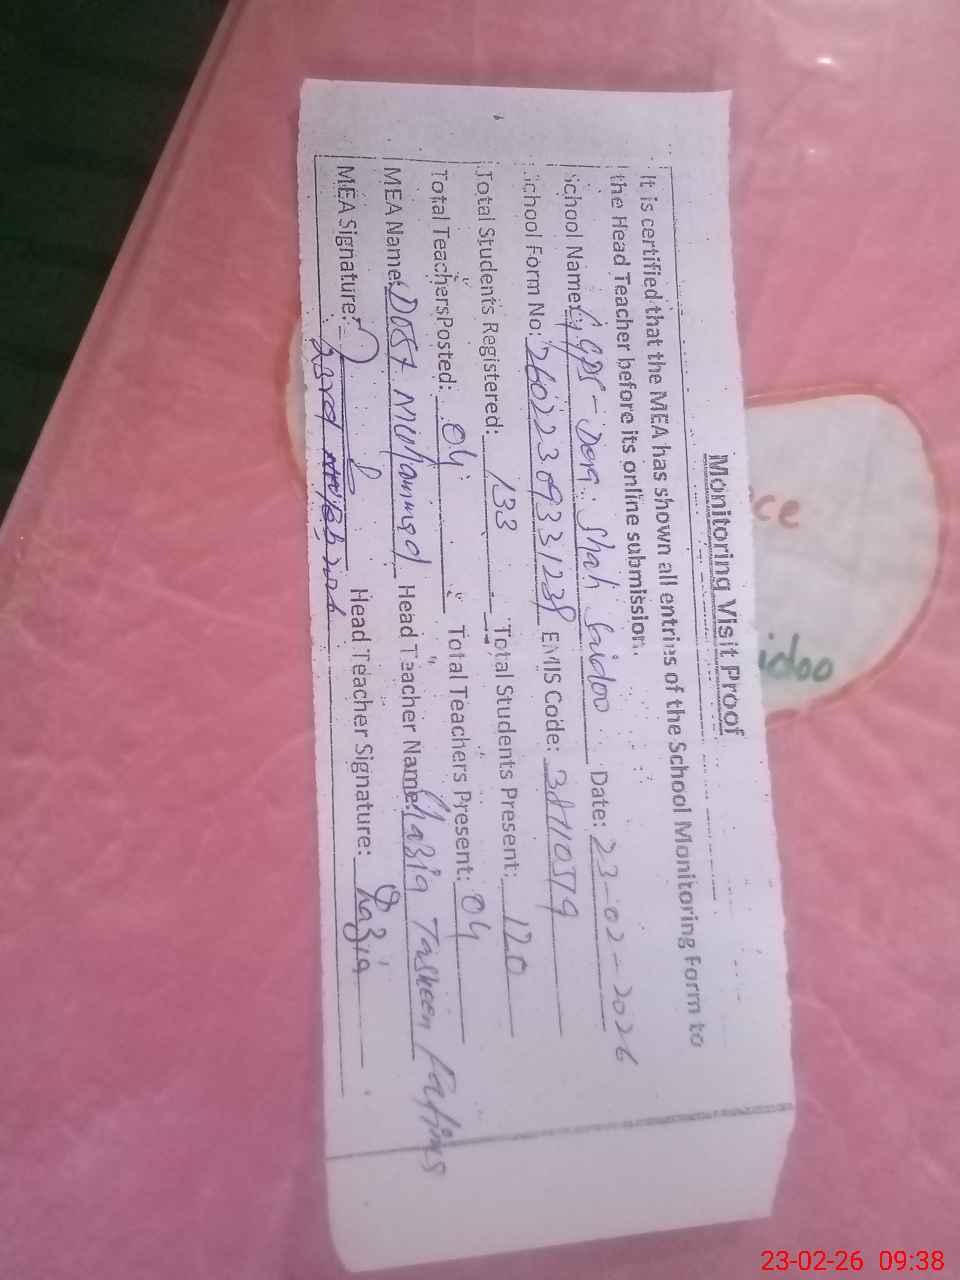 Monitoring Visit Proof
It is certified that the MEA has shown all entries of the School Monitoring Form to
the Head Teacher before its online submission.
School Name: GGPS - Dera Shah Saidoo Date: 23-02-2026
School Form No: EMIS Code:
Total Students Registered: 133 Total Students Present: 120
Total Teachers Posted: 04 Total Teachers Present: 04
MEA Name: Dost Muhammad Head Teacher Name: Tasneem Fatima
MEA Signature: Head Teacher Signature:
23rd Feb 2026
idoo
23-02-26 09:38